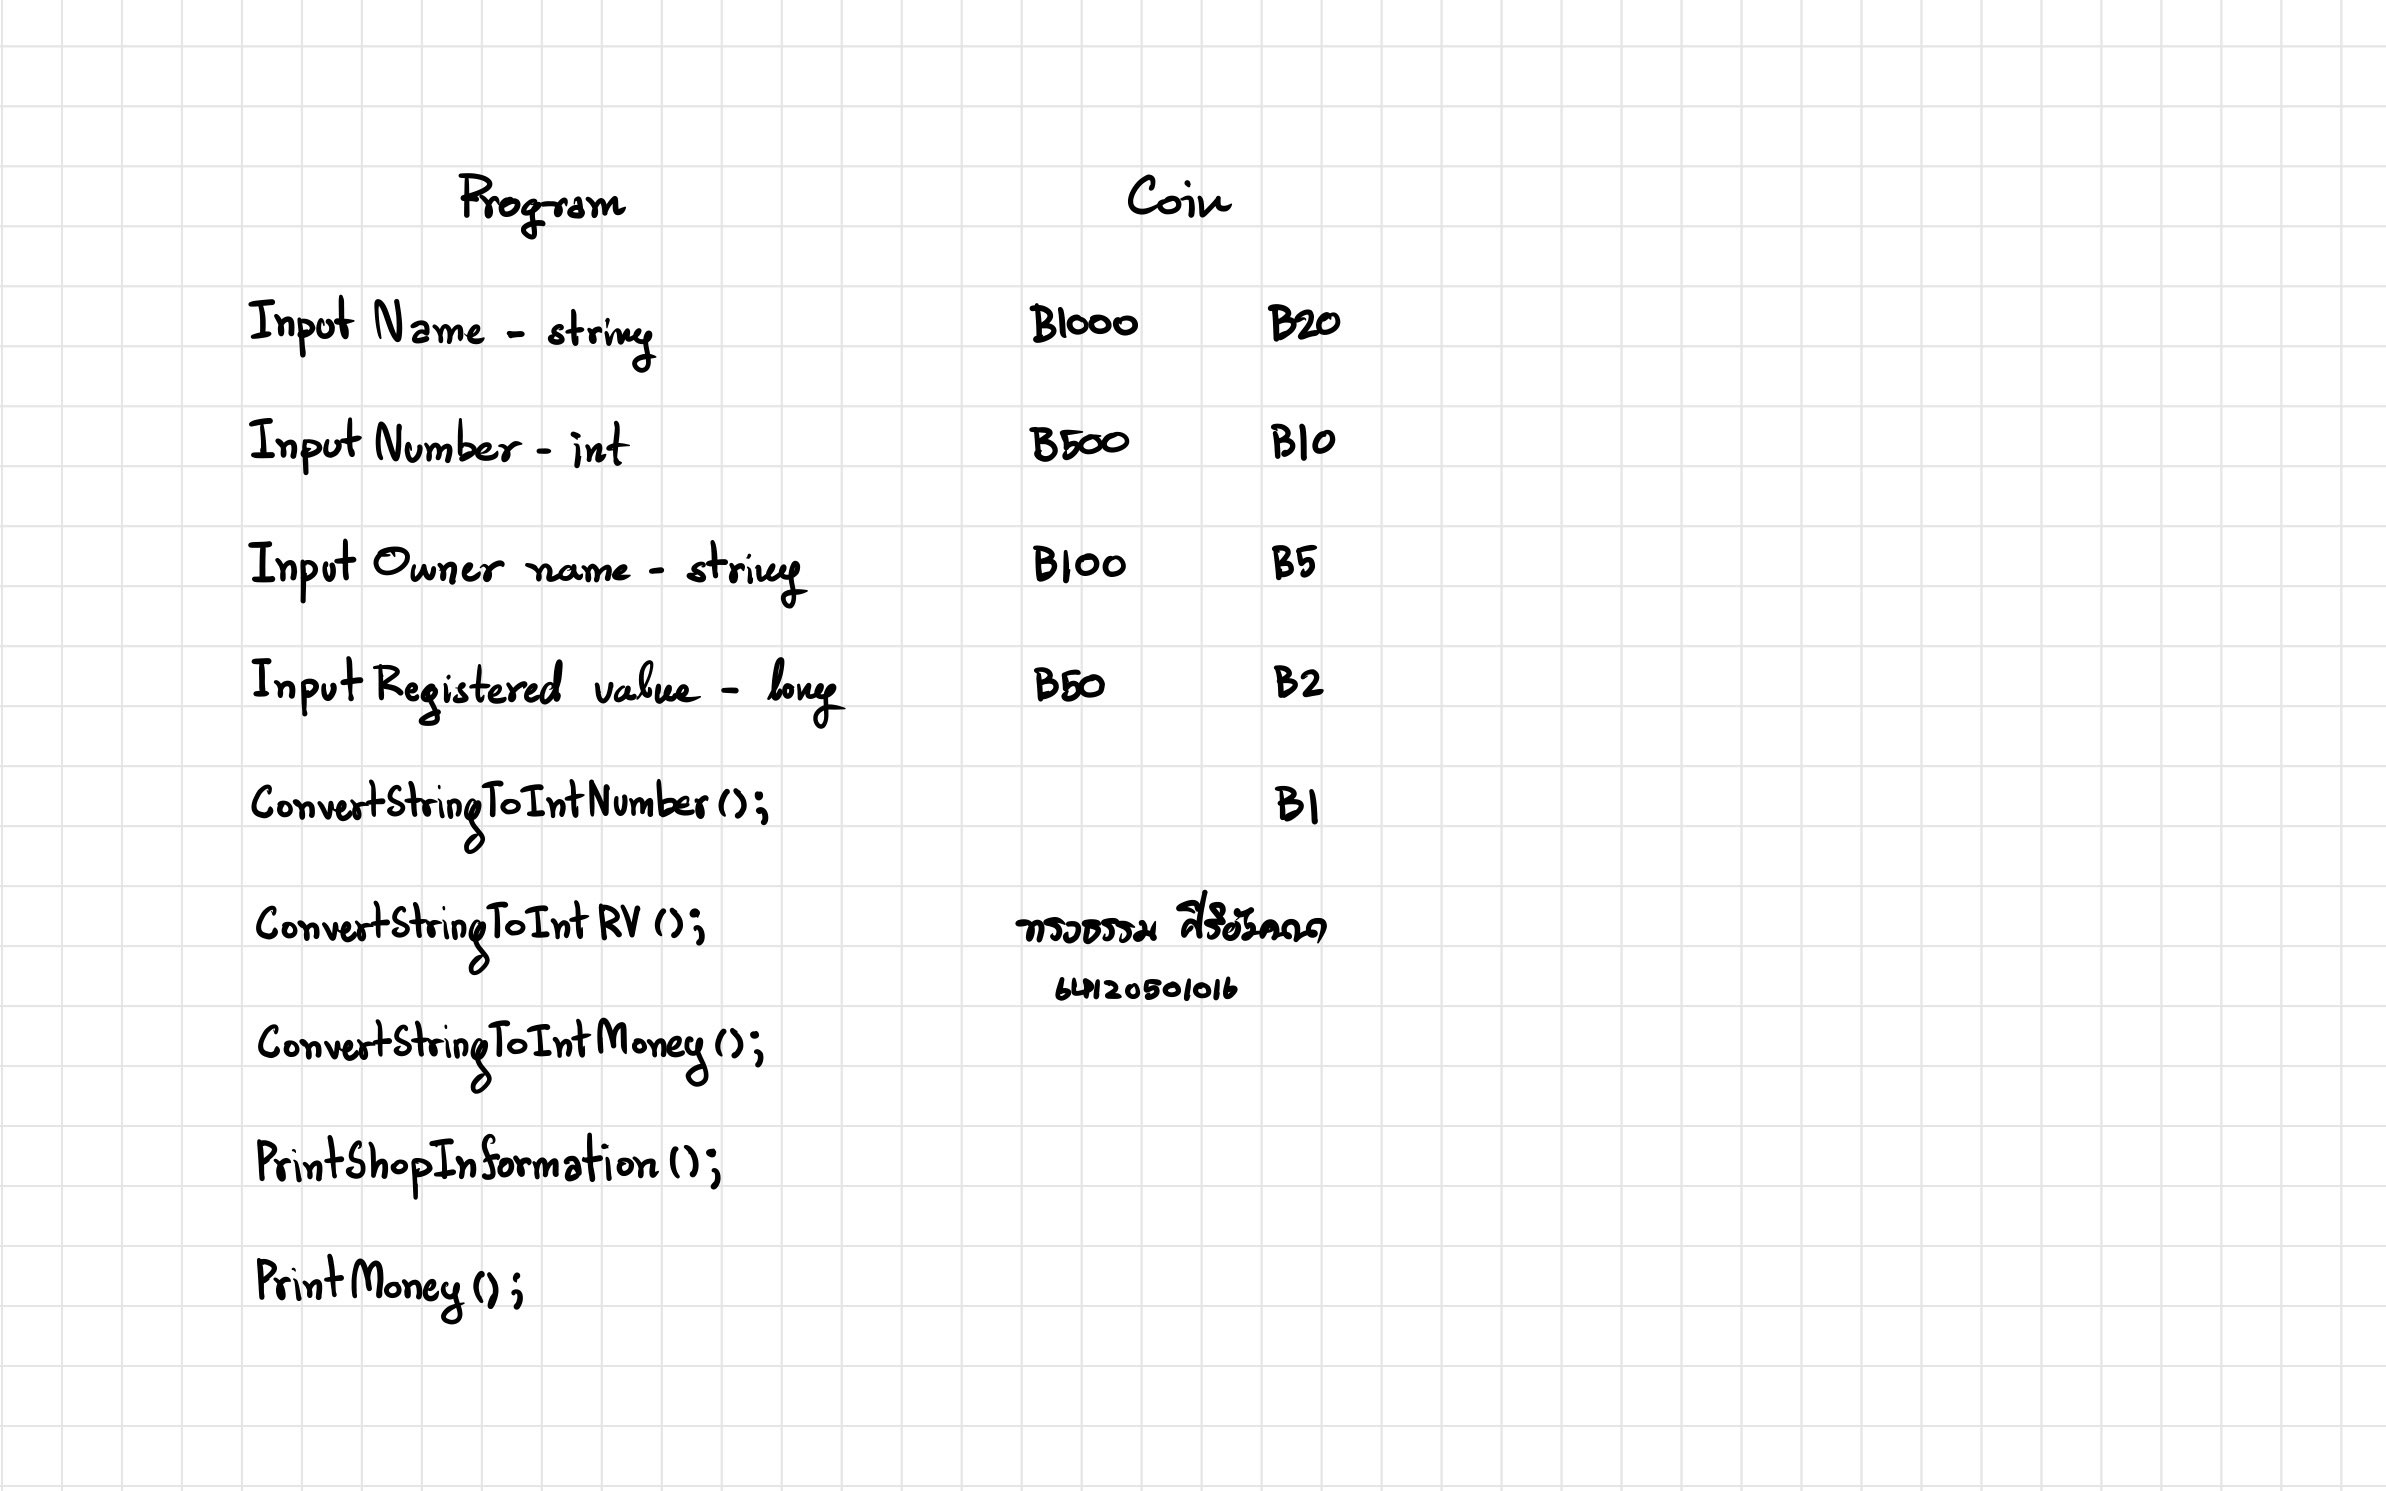 Program
Input Name - string
Input Number - int
Input Owner name - string
Input Registered value - long
ConvertStringToIntNumber();
ConvertStringToIntRV();
ConvertStringToIntMoney();
PrintShopInformation();
PrintMoney();
Coin
B1000 B20
B500 B10
B100 B5
B50 B2
B1
ทรงธรรม
64120501016